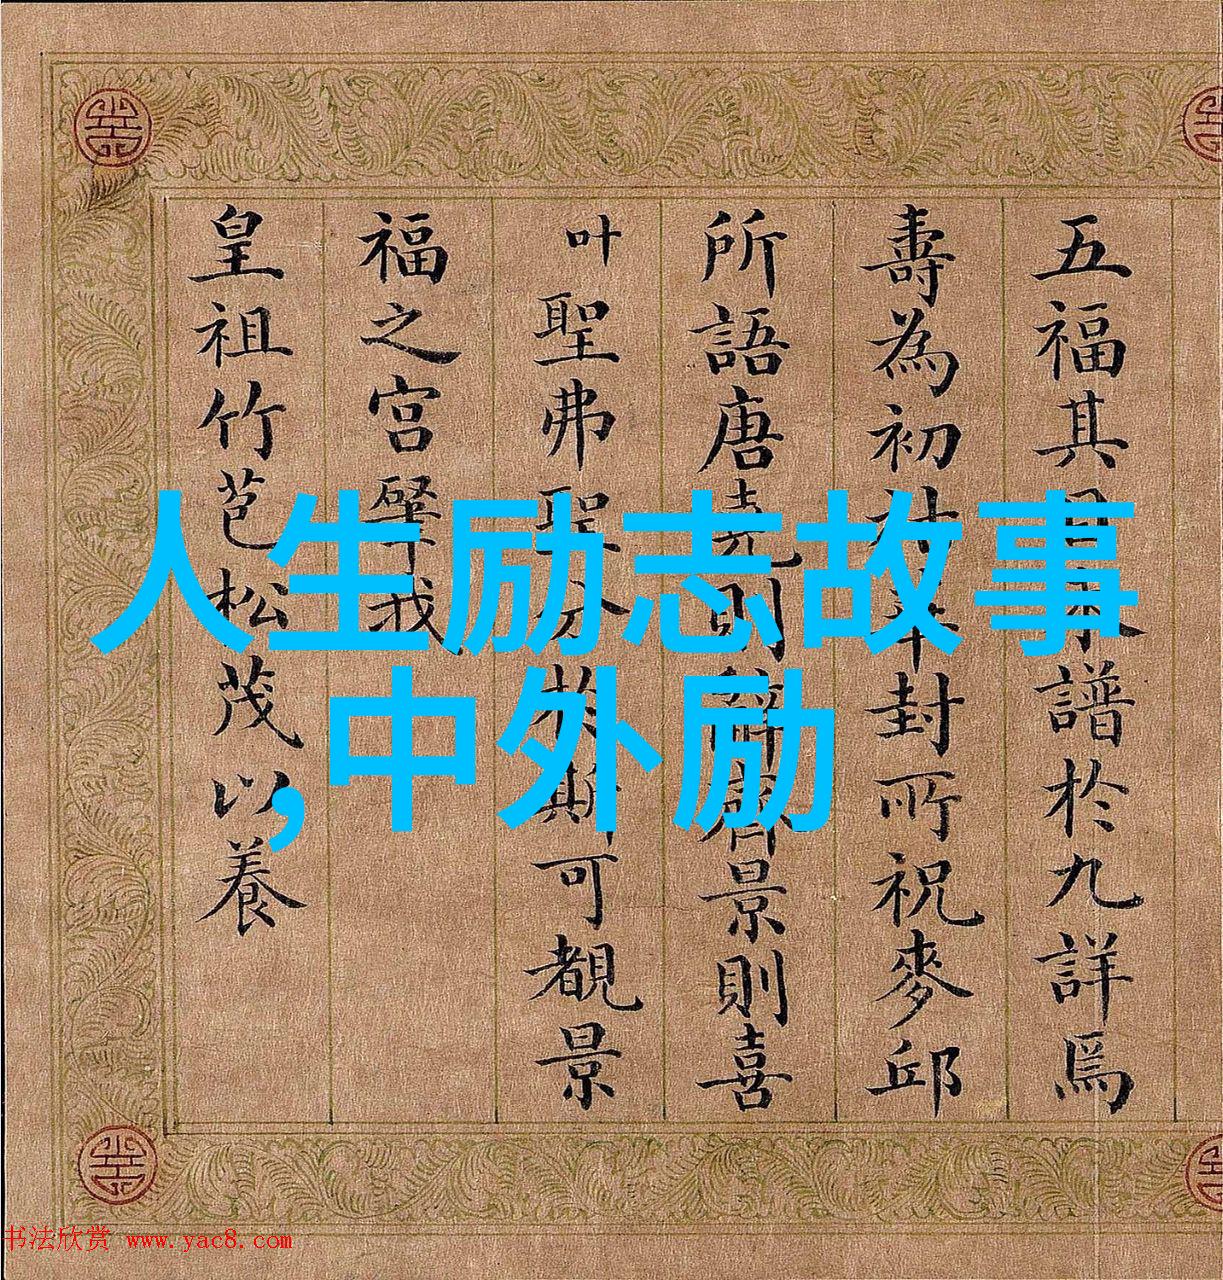 五福其目
譜於九詩焉
壽為初
封所祝麥邱
所語唐堯則辭
景則喜
叶
聖弗聖
於斯可覩景
福之宮肇我
皇祖竹苞松茂以養
人生励志故事
,中外励
书法欣赏 www.yac8.com